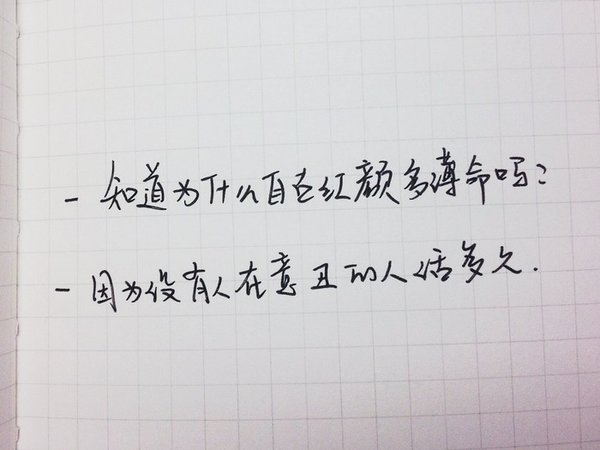 - 知道为什么自古红颜多薄命吗?
- 因为没有人在意丑的人活多久.